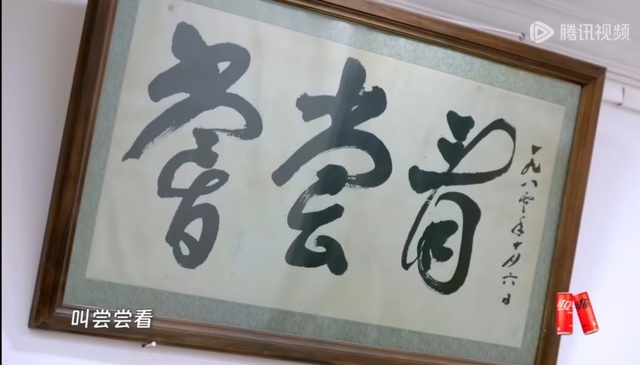 腾讯视频
嘗尝看
一九八零年十月六日
叫尝尝看